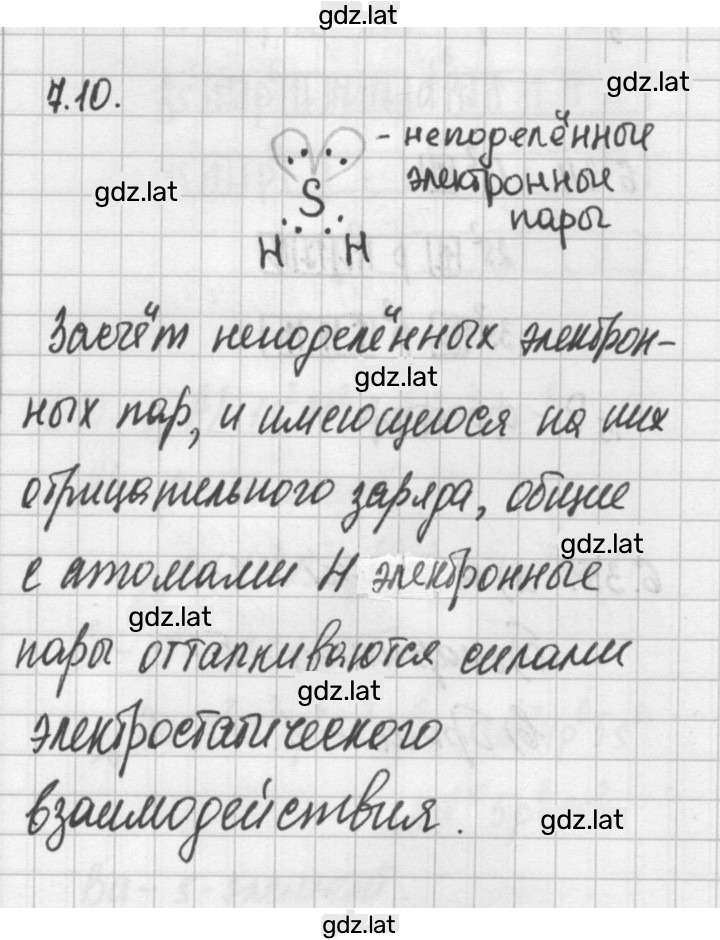 gdz.lat
7.10.
gdz.lat
- неподелённые
gdz.lat
электронные
S
пары
H H
Засчёт неподелённых электрон-
gdz.lat
ных пар, и имеющегося на них
отрицательного заряда, общие
gdz.lat
с атомами H электронные
gdz.lat
пары отталкиваются силами
gdz.lat
электростатического
взаимодействия.
gdz.lat
gdz.lat